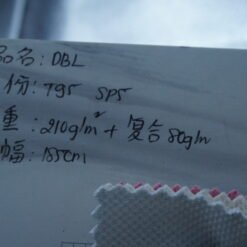 品名: DBL
份: T95 SP5
重: 210g/m²+ 复合80g/m
幅: 155cm